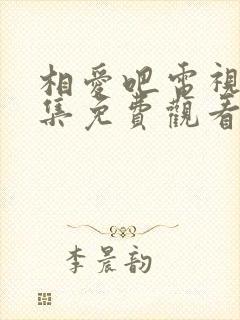 相愛吧電視
集免費觀看
李晨韵